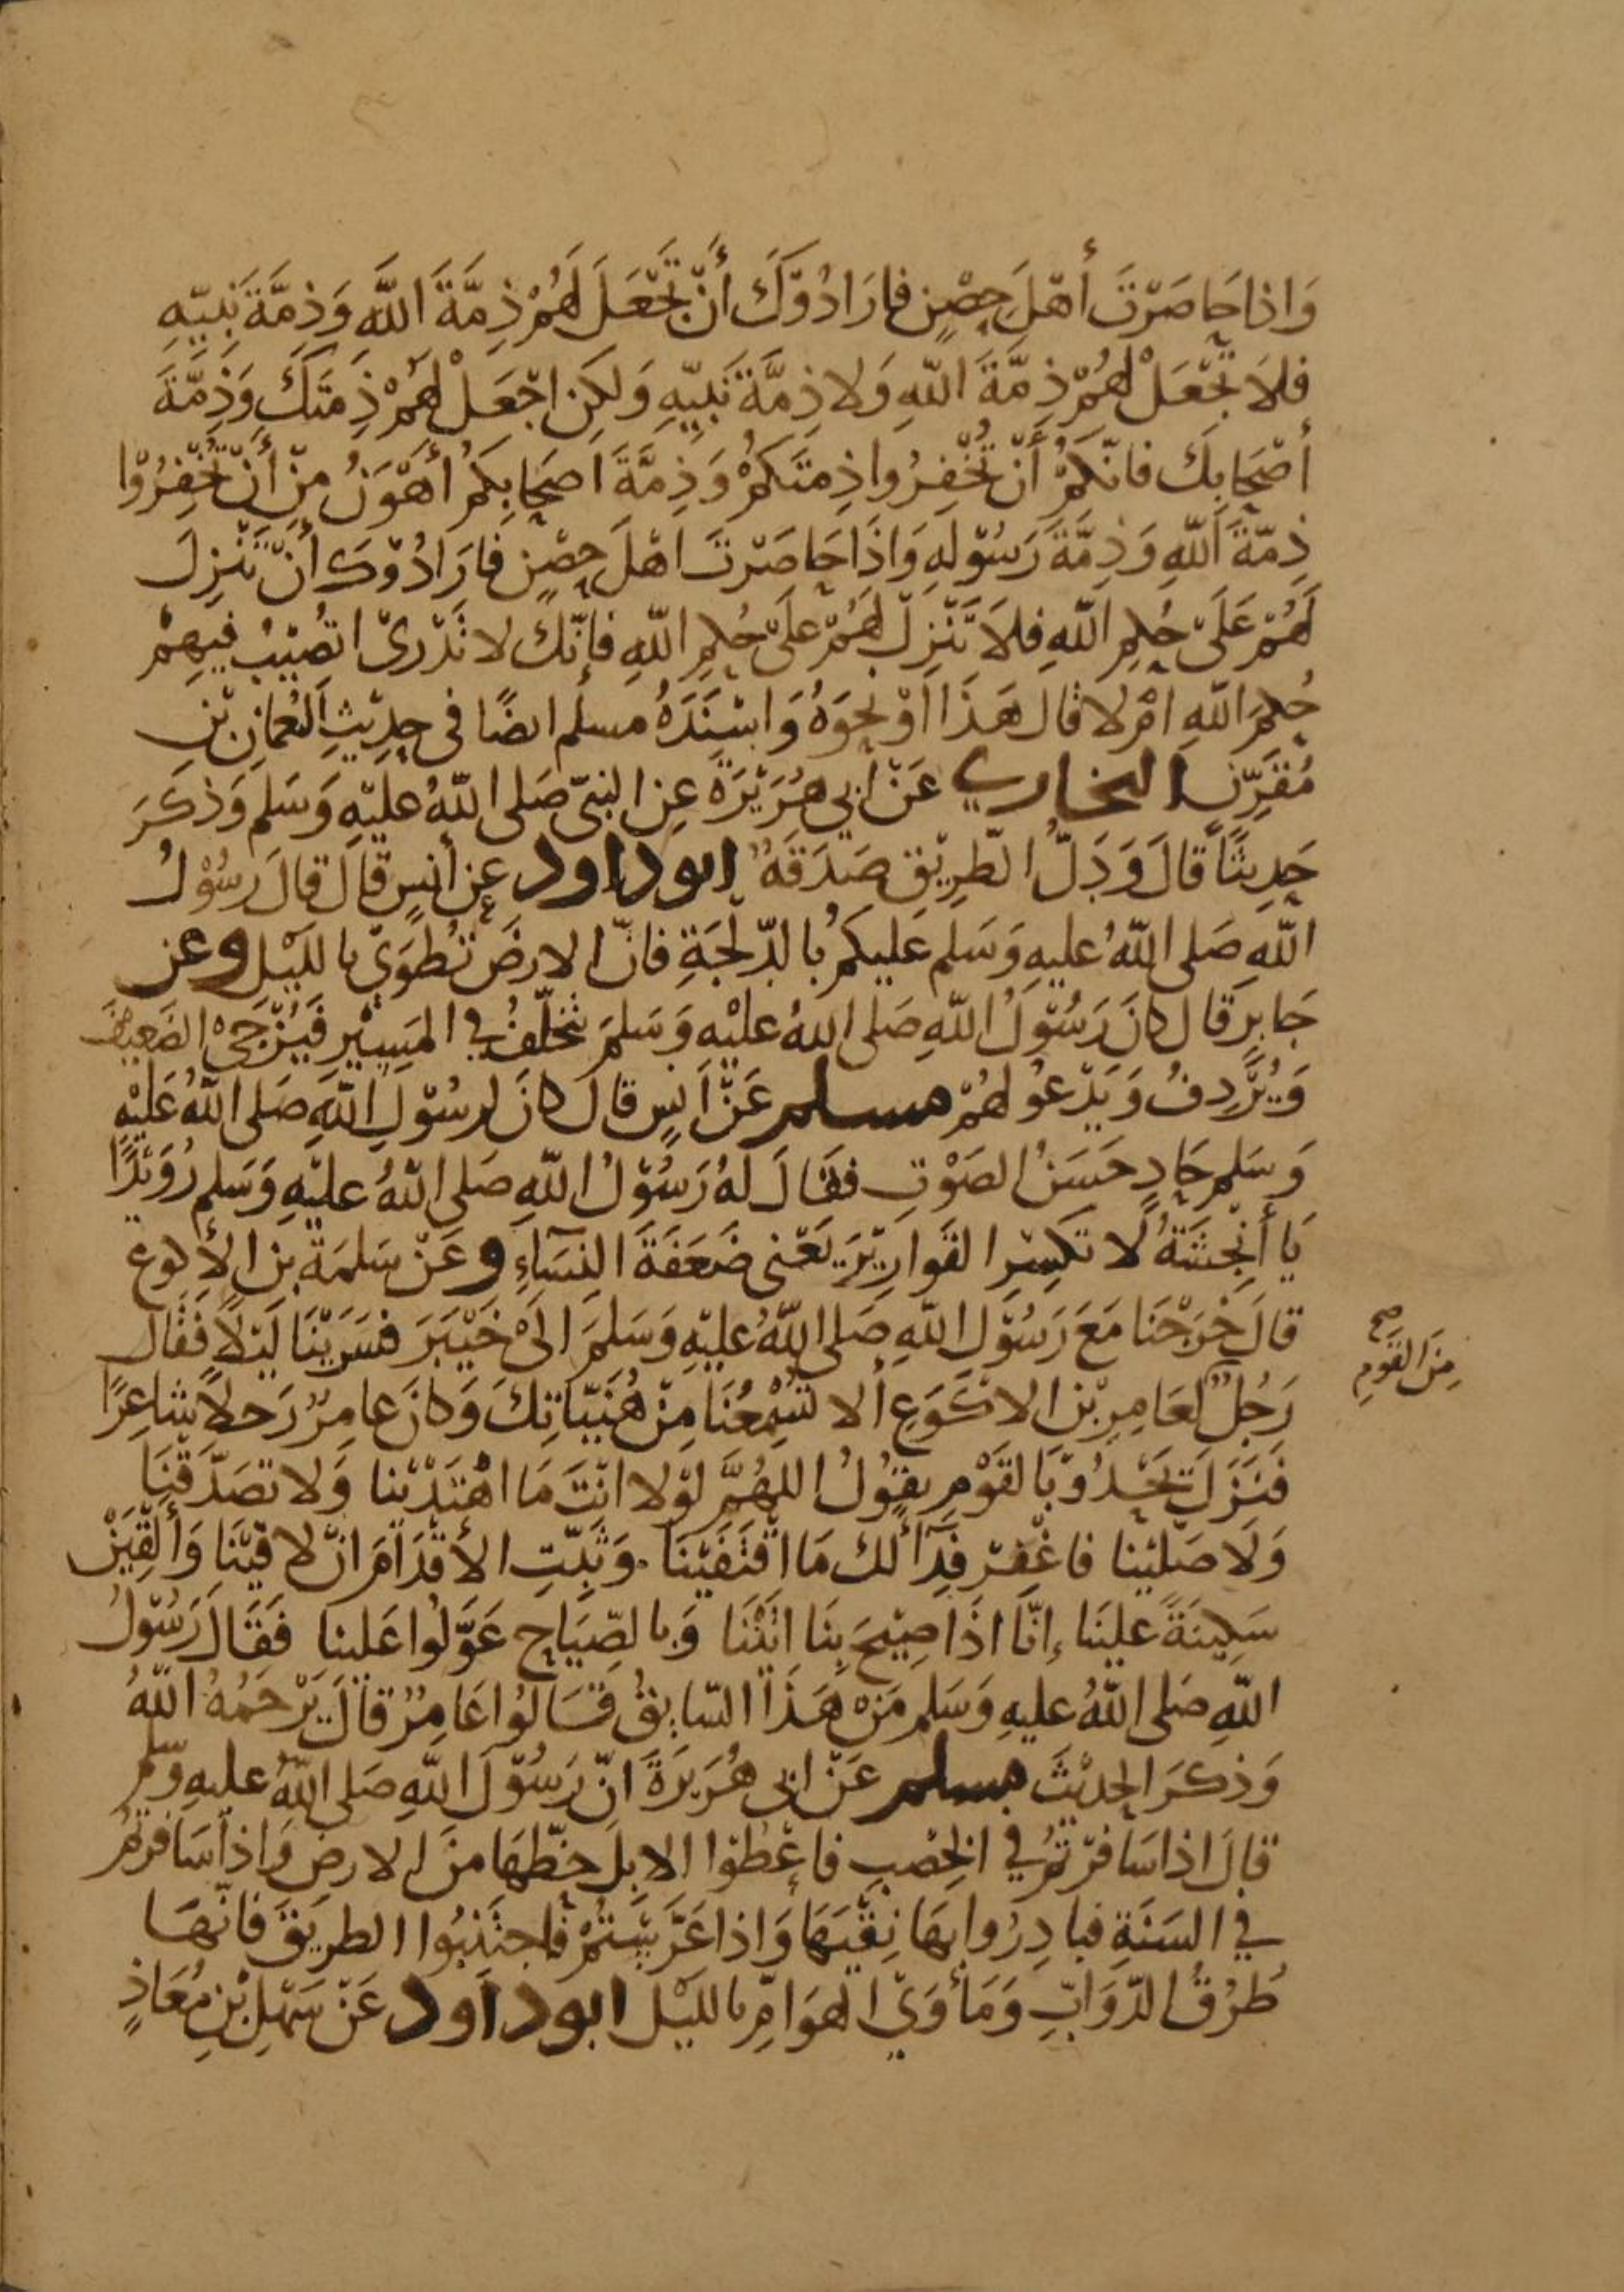 وَاذا حَاصَرْتَ أهْلَ حِصْنٍ فارَادُوْكَ أنْ تَجْعَلَ لَهُمْ ذِمَّةَ اللَّهِ وَذِمَّةَ نَبِيّهِ
فلاَ تَجْعَلْ لهُمْ ذِمَّةَ اللَّهِ وَلا ذِمَّةَ نَبِيّهِ وَلكِن اجْعَلْ لهُمْ ذِمَتَكَ وَذِمَّةَ
أصْحَابِكَ فانّكُمْ أنْ تُخْفِرُوا ذِمتَكمْ وَذِمَّةَ اصحَابِكمْ أهْوَنُ مِنْ أنْ تُخْفِرُوْا
ذِمّةَ اللَّهِ وَذِمَّةَ رَسُوْلِهِ وَاذَا حَاصَرْتَ اهْلَ حِصْنٍ فارَادُوْكَ أنْ تُنْزِلَ
لَهُمْ عَلَىْ حُكمِ اللَّهِ فلاَ تُنْزِلْ لهُمْ عَلىْ حُكمِ اللَّهِ فإنّكَ لا تَدْرِىْ اتُصِيْبُ فِيهِمْ
حُكمَ اللَّهِ امْ لا قال هَذَا اوْ نحوَهُ وَاسْنَدَهُ مسلم ايضًا فى حَدِيْثِ النُّعمان بْنِ
مُقَرِّنٍ البخاري عَنْ ابي هُرَيْرَةَ عن النبىّ صَلى اللَّهُ عليْهِ وَسَلم وَذكَرَ
حَدِيثًا قالَ وَدَلُّ الطّرِيْقِ صَدَقَةٌ ابو داود عن أنسٍ قالَ قالَ رسُوْلُ
اللَّهِ صَلى اللَّهُ عليهِ وَسَلم عَليكمُ بالدّلْجَةِ فانّ الارضَ تُطوَىْ بالليْل وعن
جَابرٍ قال كانَ رَسُوْلُ اللَّهِ صَلى اللهُ عليْهِ وَسَلمَ يتخلّفُ في المَسِيْرِ فَيُزْجِىْ الضَعِيفَ
وَيُرْدِفُ وَيَدْعُو لهُمْ مسلم عَنْ أنسٍ قال كانَ لرسُوْلِ اللَّهِ صَلى اللَّهُ عَليْهِ
وَسَلم حَادٍ حَسَنُ الصَوْتِ فقَالَ لهُ رَسُوْلُ اللَّهِ صَلى اللَّهُ عليْهِ وَسَلم رُوَيْدًا
يَا أنْجشَةُ لا تكسِرِ القَوارِيْرَ يَعْنى ضَعَفَةَ النِسَاءِ وعَنْ سَلمَةَ بن الأكوع
قالَ خَرَجْنَا مَعَ رَسُوْلِ اللَّهِ صَلى اللَّهُ عليْهِ وَسَلمَ الىْ خَيْبَرَ فسَرَيْنَا لَيْلاً فَقَال
رَجُلٌ لعَامِرِ بْن الاكوَعِ ألا تُسْمِعُنَا مِنْ هُنَيّاتِكَ وَكانَ عامِرٌ رَجلاً شاعِرًا
فَنَزَلَ يَحْدُوْ بالقَوْمِ يقوُلُ اللهُمَّ لوْلا انْتَ مَا اهْتَدَيْنا وَلا تصَدّقْنَا
وَلَا صَلّيْنا فاغْفِرْ فِدَآءً لكَ مَا اقْتَفَيْنَا وَثَبِّتِ الأقْدَامَ انْ لاقيْنَا وَألْقِيَنْ
سَكِينَةً عليْنَا إنّا اذَا صِيْحَ بنَا اتَيْنَا وَبالصِّيَاحِ عَوَّلُوا عَلينا فقَالَ رَسُوْلُ
اللَّهِ صَلى اللَّهُ عليهِ وَسَلم مَنْ هَذَا السّايِقُ قالُوا عَامِرٌ قالَ يَرْحَمُهُ اللَّهُ
وَذكرَ الحديْثَ مسلم عَنْ ابى هُرَيرَةَ انّ رَسُوْلَ اللَّهِ صَلى اللَّهُ عليهِ وَسلم
قالَ اذا سَافرْتمُ في الخِصْبِ فاعْطوْا الابِلَ حَظّهَا منَ الارضِ وَاذا سَافرْتمْ
في السَنَةِ فبادِرُوا بهَا نِقْيَهَا وَاذا عَرَّسْتُمْ فاجتَنِبُوا الطرِيَقَ فانّهَا
طُرُقُ الدّوَابِّ وَمَأوَىْ الهَوَامِّ بالليْل ابوداود عَنْ سَهْلِ بْنِ مُعَاذٍ
مِنَ القَومِ صح